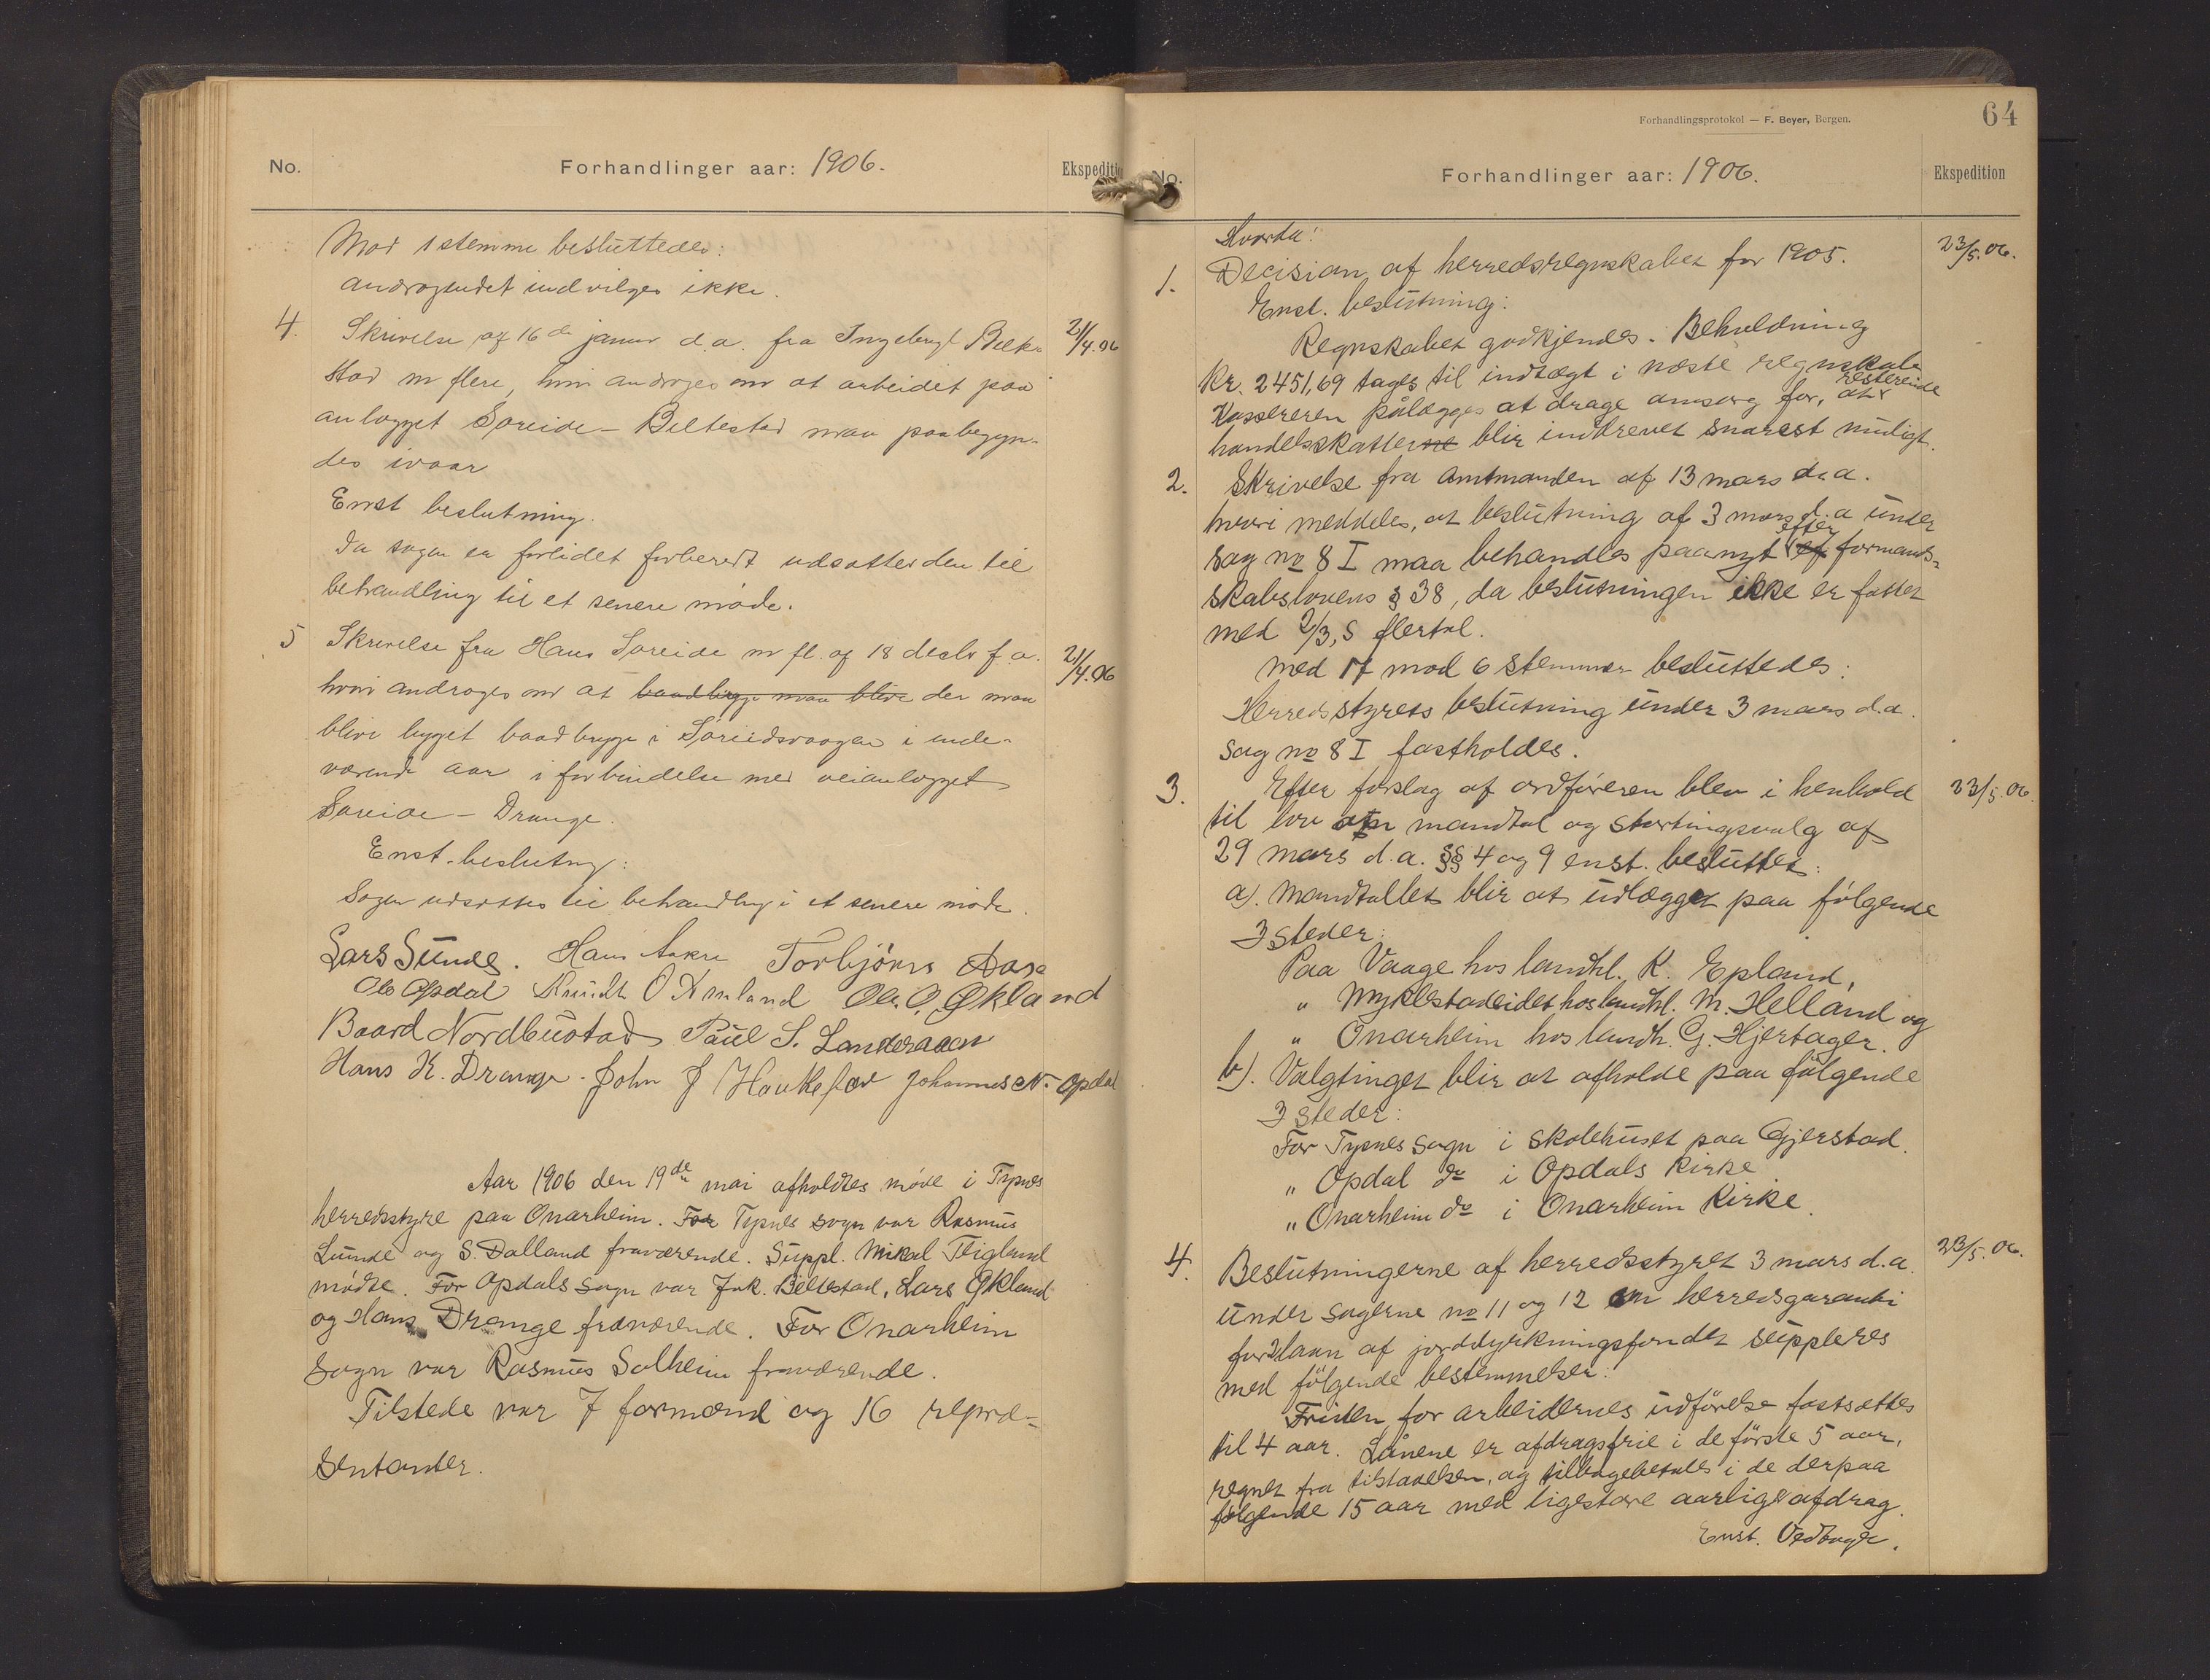 No. Forhandlinger aar: 1906. Ekspediti
Mod 1 stemme besluttedes:
andragendet indvilges ikke.
4. Skrivelse af 16de januar d.a. fra Ingebrigt Belte- 21/4.06
stad m flere, hvori andrages om at arbeidet paa
anlægget Søreide - Beltestad maa paabegyn-
des ivaar
Enst beslutning.
Da sagen er forlidet forberedt udsættes den til
behandling til et senere møde.
5 Skrivelse fra Hans Søreide m fl. af 18 decbr f a. 21/4.06
hvori andrages om at baadbrygge maa blive der maa
blive bygget baadbrygge i Søreidsvaagen i inde-
værende aar i forbindelse med veianlægget
Søreide - Drange.
Enst. beslutng:
Sagen udsættes til behandling i et senere møde.
Lars Sunde. Hans Aakre Torbjörn Aase
Ole Opdal Knudt O Amland Ole O. Økland
Baard Nordbustad Paul S. Landeraaen
Hans K. Drange. John J Haukefær Johannes N. Opdal
Aar 1906 den 19de mai afholdtes møde i Tysnes
herredsstyre paa Onarheim. For Tysnes sogn var Rasmus
Lunde og S. Dalland fraværende. Suppl. Mikal Teigland
mødte. For Opdals sogn var Jak. Beltestad, Lars Økland
og Hans Drange fraværende. For Onarheim
sogn var Rasmus Solheim fraværende.
Tilstede var 7 formænd og 16 repræ-
sentanter.
Forhandlingsprotokol — F. Beyer, Bergen. 64
No. Forhandlinger aar: 1906. Ekspedition
Hvorda:
1. Decision af herredsregnskabet for 1905. 23/5.06.
Enst. beslutning:
Regnskabet godkjendes. Beholdning
Kr. 2451,69 tages til indtægt i næste regnskab
Kassereren pålægges at drage omsorg for, at resterende
handelsskatterne blir inddrevet snarest muligt.
2. Skrivelse fra Amtmanden af 13 mars d.a.
hvori meddeles, at beslutning af 3 mars d.a under
sag no 8 I maa behandles paanyt ef efter formand-
skabslovens § 38, da beslutningen ikke er fattet
med 2/3,s flertal.
Med 17 mod 6 stemmer besluttedes:
Herredsstyrets beslutning under 3 mars d.a.
sag no 8 I fastholdes.
3. Efter forslag af ordføreren blev i henhold 23/5.06.
til lov om mandtal og stortingsvalg af
29 mars d.a. §§ 4 og 9 enst. besluttet:
a). Mandtallet blir at udlægget paa følgende
3 steder:
Paa Vaage hos landhl. K. Epland,
" Myklestadeidet hos landhl. M. Helland og
" Onarheim hos landh. G. Hjertager.
b). Valgtinget blir at afholde paa følgende
3 steder:
For Tysnes sogn i skolehuset paa Gjerstad.
" Opdal do i Opdals Kirke
" Onarheim do i Onarheim Kirke.
4. Beslutningerne af herredsstyret 3 mars d.a. 23/5.06.
under sagerne no 11 og 12 om herredsgaranti
for 2 laan af jorddyrkningsfondet suppleres
med følgende bestemmelser:
Fristen for arbeidernes udførelse fastsættes
til 4 aar. Lånene er afdragsfrie i de første 5 aar,
regnet fra tilstaaelsen, og tilbagebetales i de derpaa
følgende 15 aar med ligestore aarlige afdrag.
Enst. Vedtaget.